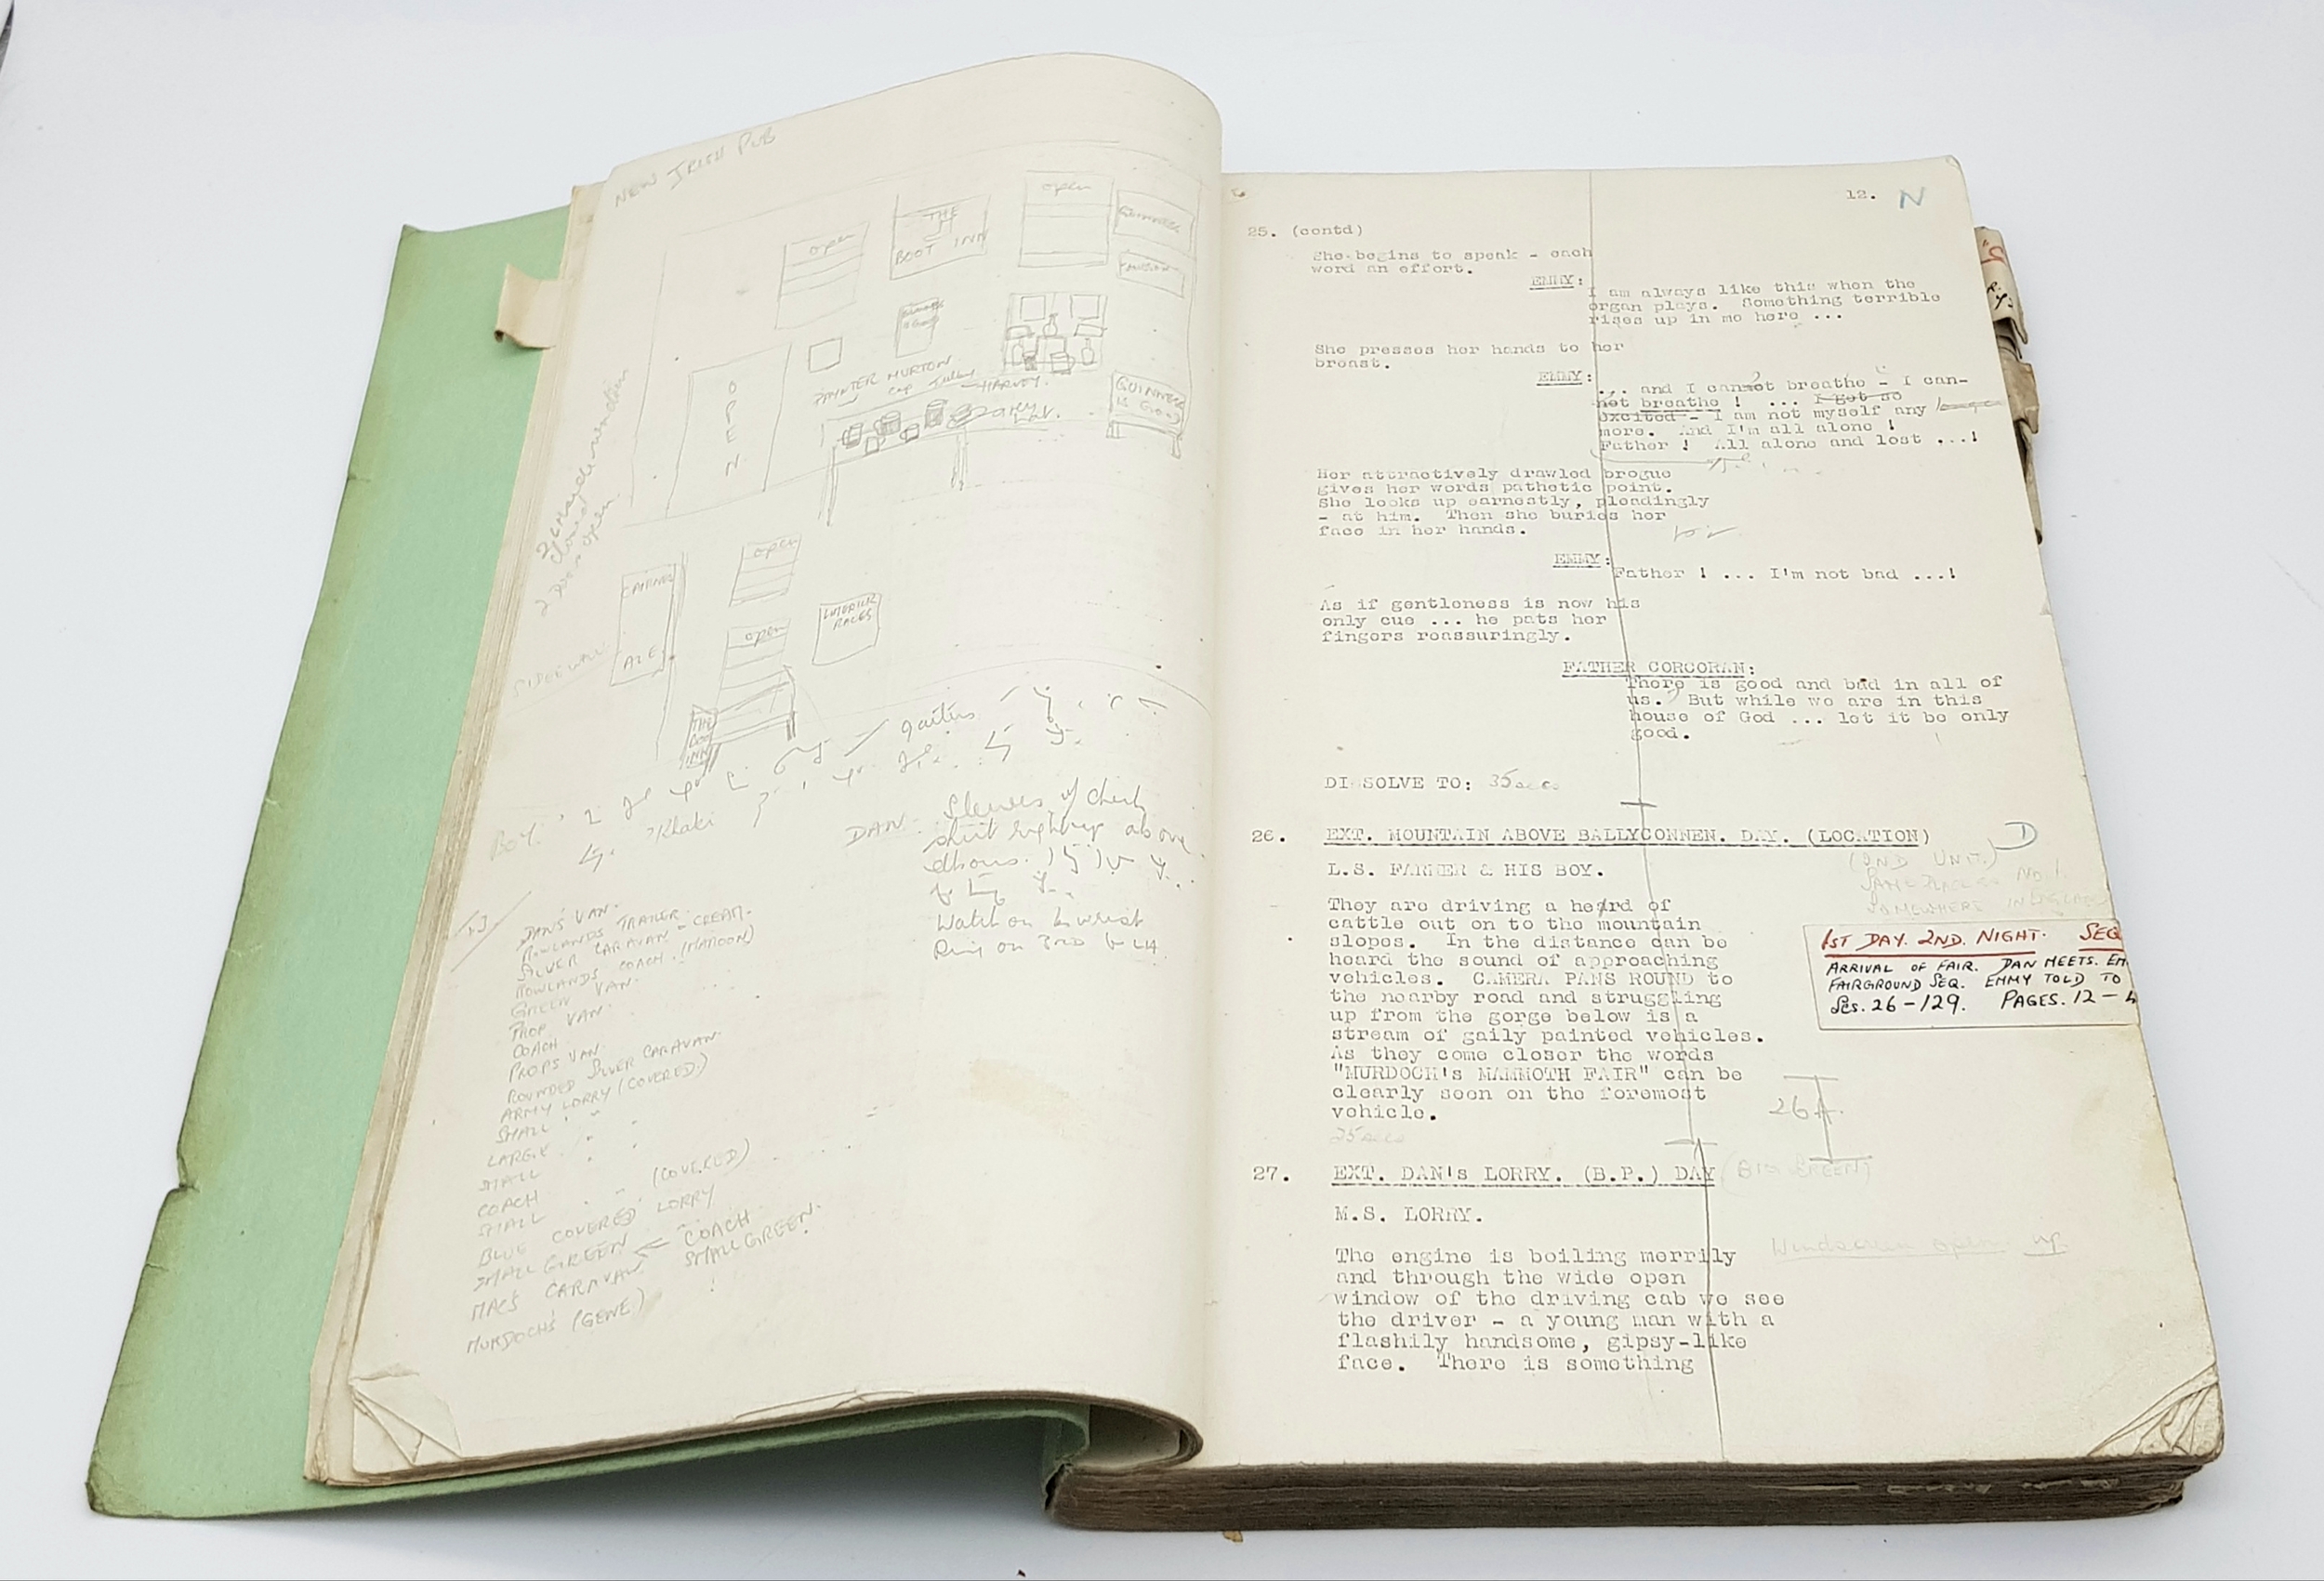 NEW IRISH PUB
open
THE
BOOT INN
open
GUINNESS
OPEN
PAINTER MURTON
HARVEY.
GUINNESS
IS GOOD
open
open
INTERIOR
RACES
ALE
SIDE WALL
THE
BOOT
INN
gaiters
BOY.
Khaki
DAN. Sleeves of check
shirt right up above
elbows.
Watch on L wrist
Ring on 3RD LH
DAN'S VAN.
ROWLANDS TRAILER.
SILVER CARAVAN - CREAM.
ROWLANDS COACH. (MAROON)
GREEN VAN.
PROP VAN.
COACH
PROPS VAN.
ROUNDED SILVER CARAVAN.
ARMY LORRY (COVERED.)
SMALL " "
LARGE " "
SMALL
COACH
SMALL " (COVERED)
BLUE COVERED LORRY
SMALL GREEN ← COACH
MAC'S CARAVAN SMALL GREEN.
MURDOCHS (GENE.)
12. N
25. (contd)
She begins to speak - each
word an effort.
EMMY:
I am always like this when the
organ plays. Something terrible
rises up in me here ...
She presses her hands to her
breast.
EMMY:
... and I cannot breathe - I can-
not breathe ! ... I get so
excited - I am not myself any
more. And I'm all alone !
Father ! All alone and lost ...!
Her attractively drawled brogue
gives her words pathetic point.
She looks up earnestly, pleadingly
- at him. Then she buries her
face in her hands.
EMMY:
Father ! ... I'm not bad ...!
As if gentleness is now his
only cue ... he pats her
fingers reassuringly.
FATHER CORCORAN:
There is good and bad in all of
us. But while we are in this
house of God ... let it be only
good.
DISSOLVE TO: 35 secs
26. EXT. MOUNTAIN ABOVE BALLYCONNEN. DAY. (LOCATION) D
(2ND UNIT.)
SAME PLACE AS NO. 1.
SOMEWHERE IN ENGLAND
L.S. FARMER & HIS BOY.
They are driving a heard of
cattle out on to the mountain
slopes. In the distance can be
heard the sound of approaching
vehicles. CAMERA PANS ROUND to
the nearby road and struggling
up from the gorge below is a
stream of gaily painted vehicles.
As they come closer the words
"MURDOCH's MAMMOTH FAIR" can be
clearly seen on the foremost
vehicle.
25 secs
1ST DAY. 2ND. NIGHT. SEQ
ARRIVAL OF FAIR. DAN MEETS. EM
FAIRGROUND SEQ. EMMY TOLD TO
Scs. 26-129. PAGES. 12-4
26A.
27. EXT. DAN's LORRY. (B.P.) DAY (BIG GREEN)
M.S. LORRY.
Windscreen open up
The engine is boiling merrily
and through the wide open
window of the driving cab we see
the driver - a young man with a
flashily handsome, gipsy-like
face. There is something